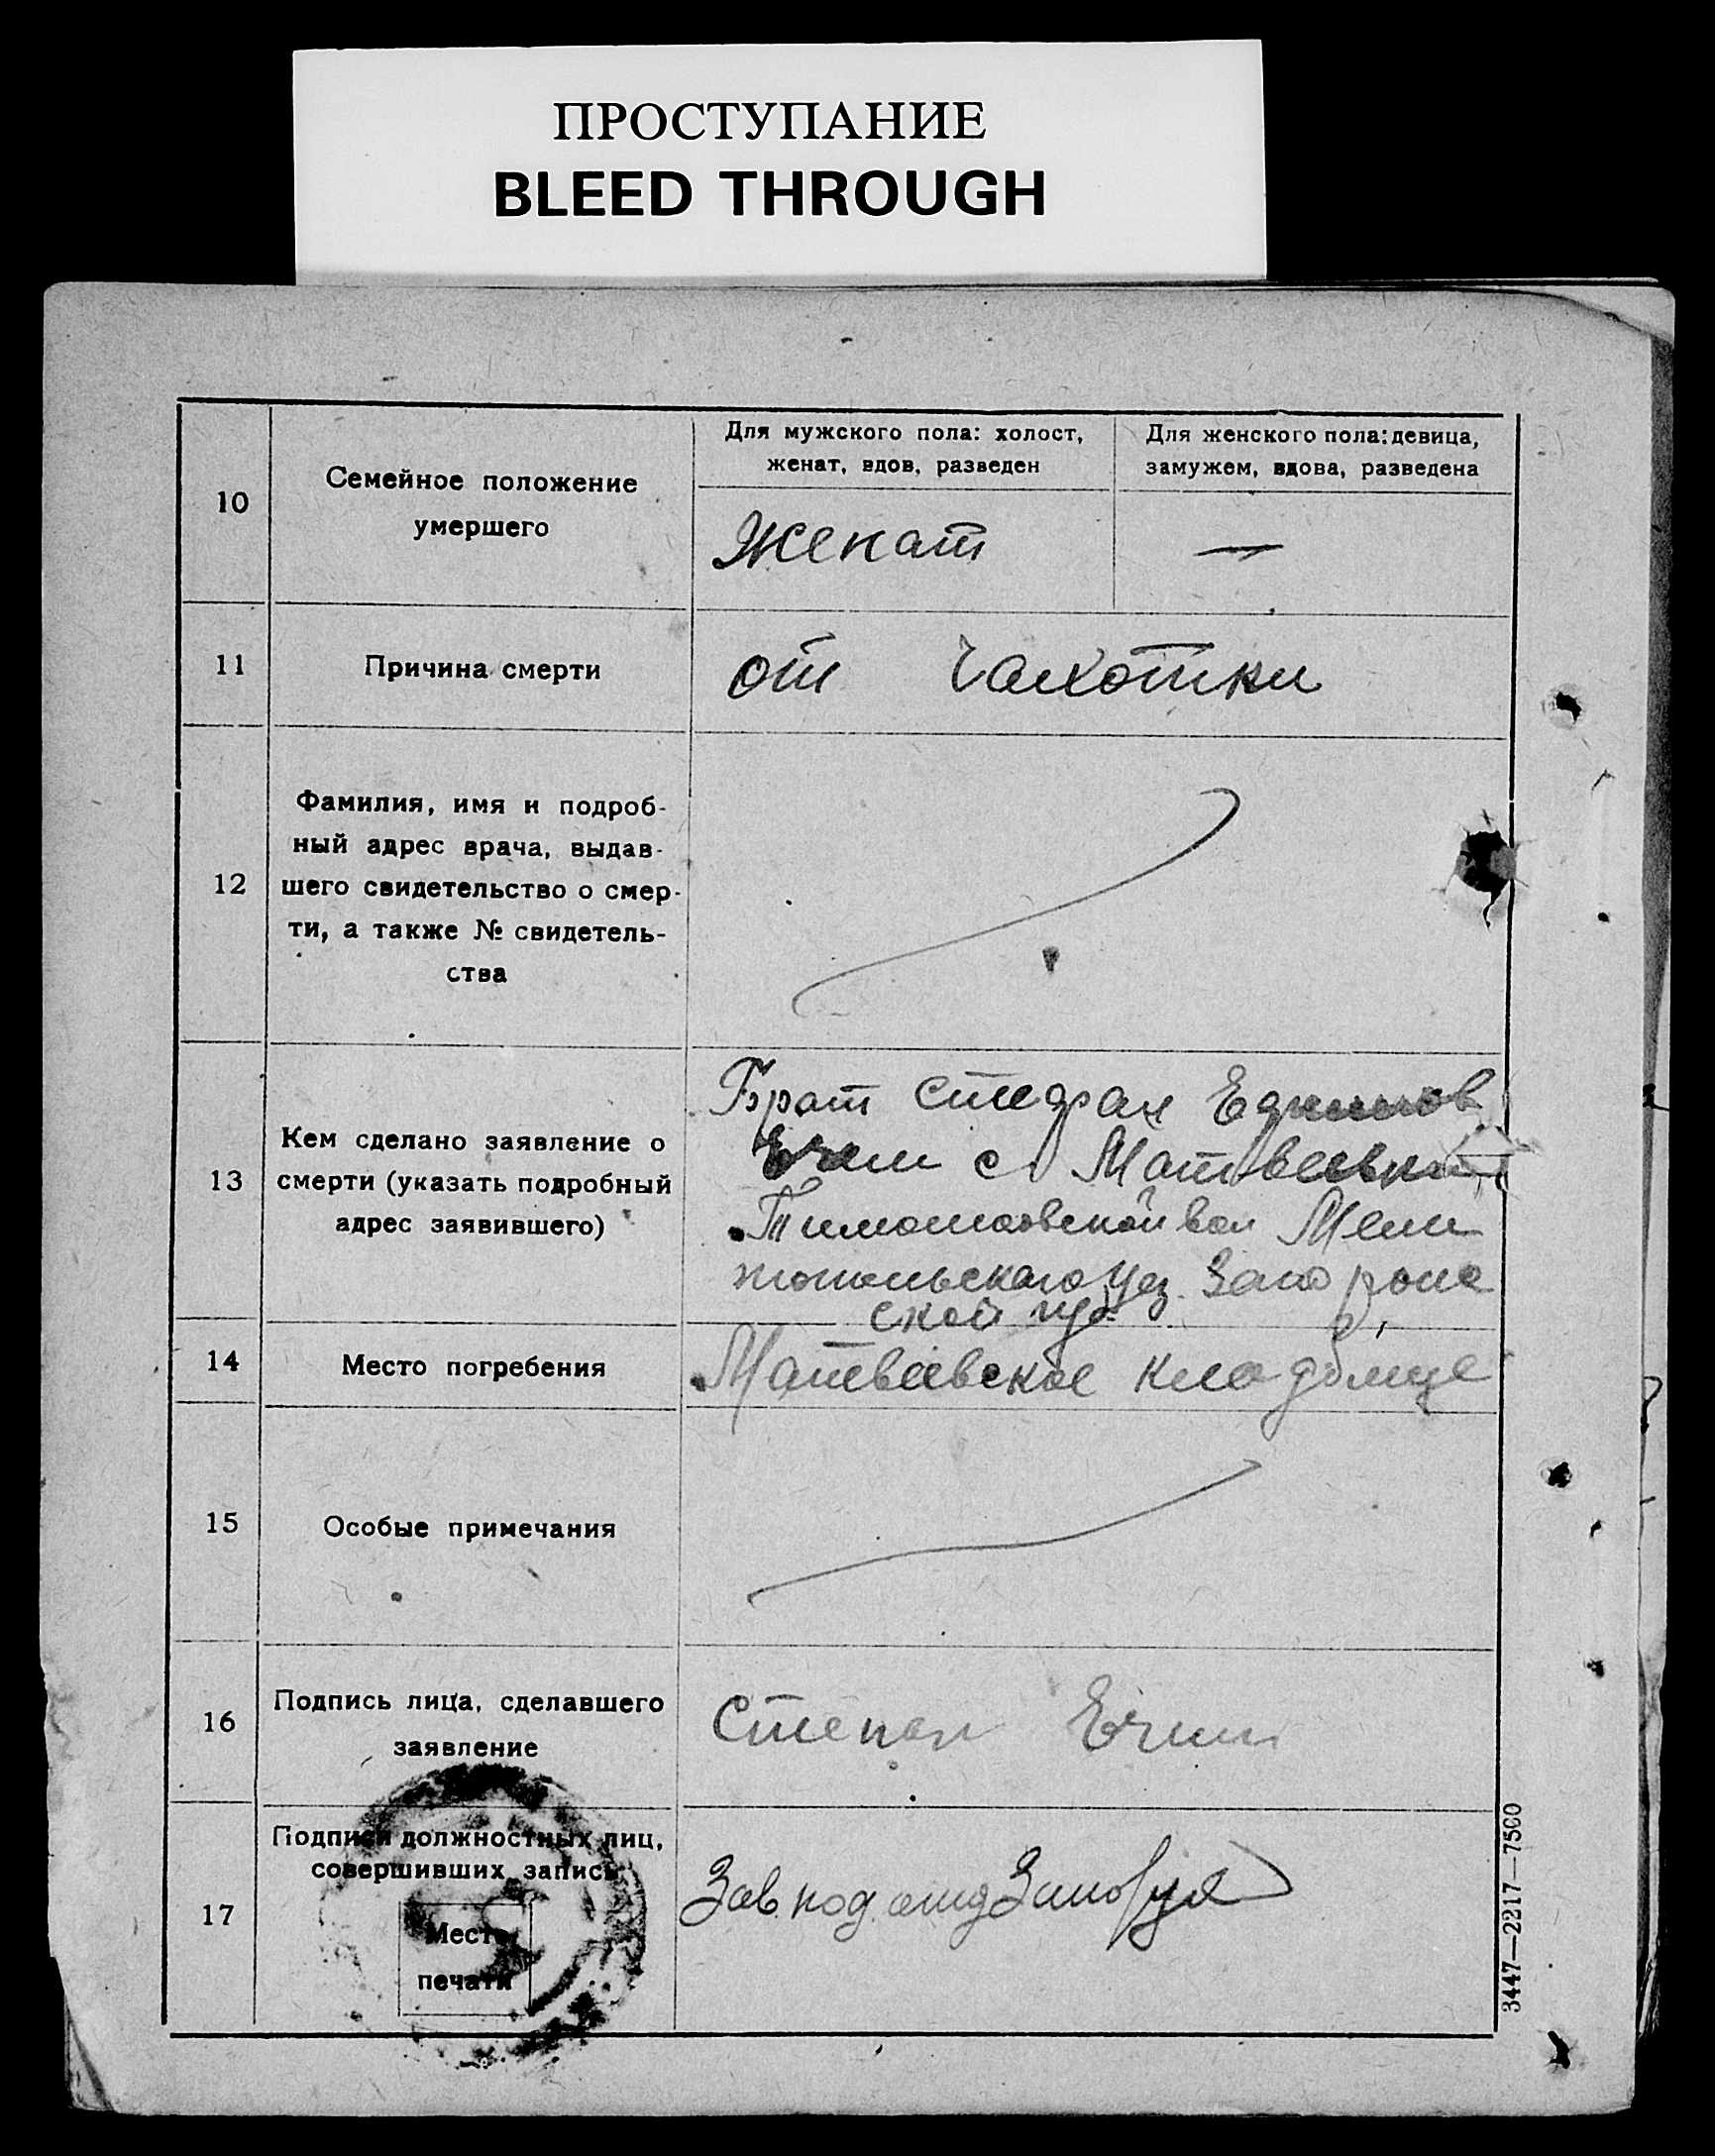 ПРОСТУПАНИЕ
BLEED THROUGH
10
Семейное положение
умершего
Для мужского пола: холост,
женат, вдов, разведен
Для женского пола: девица,
замужем, вдова, разведена
Женат
—
11
Причина смерти
от чахотки
12
Фамилия, имя и подроб-
ный адрес врача, выдав-
шего свидетельство о смер-
ти, а также № свидетель-
ства
13
Кем сделано заявление о
смерти (указать подробный
адрес заявившего)
Брат Стефан
с. Матвеевки
Тимошовской вол Мели
топольскаго уез. Запорож
ской губ
14
Место погребения
Матвеевское кладбище
15
Особые примечания
16
Подпись лица, сделавшего
заявление
Степан Ечин
17
Подписи должностных лиц,
совершивших запись
Место
печати
Зав. под. отд
3447—2217—7500